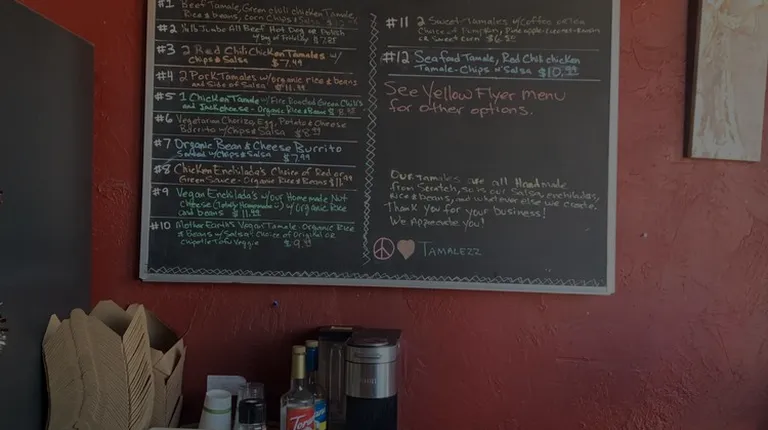 #1 Beef Tamale, Green chili chicken Tamale,
Rice & beans, corn Chips & Salsa
#2 1/4 lb Jumbo All Beef Hot Dog or Polish
#3 2 Red Chili Chicken Tamales w/
Chips & Salsa $7.99
#4 2 Pork Tamales w/organic rice & beans
and Side of Salsa $11.99
#5 1 Chicken Tamale w/Fire Roasted Green Chili's
and Jack cheese - Organic Rice & Beans
#6 Vegetarian Chorizo, Egg, Potato & Cheese
Burrito w/Chips & Salsa $8.99
#7 Organic Bean & Cheese Burrito
Served w/Chips & Salsa $7.99
#8 Chicken Enchilada's Choice of Red or
Green Sauce - Organic Rice & Beans
#9 Vegan Enchilada's w/our Homemade Nut
Cheese (Totally Homemade) w/Organic Rice
and beans $11.99
#10 Mother Earth's Vegan Tamale. Organic Rice
& beans w/Salsa. Choice of Original or
Chipotle Tofu Veggie $9.99
#11 2 Sweet Tamales w/Coffee or Tea
Choice of Pumpkin, Pineapple
or Sweet corn
#12 Seafood Tamale, Red Chili chicken
Tamale - Chips & Salsa $10.99
See Yellow Flyer menu
for other options.
Our tamales are all Handmade
from Scratch, so is our Salsa, enchiladas,
Rice & beans, and whatever else we create.
Thank you for your business!
We Appreciate you!
Tamalezz